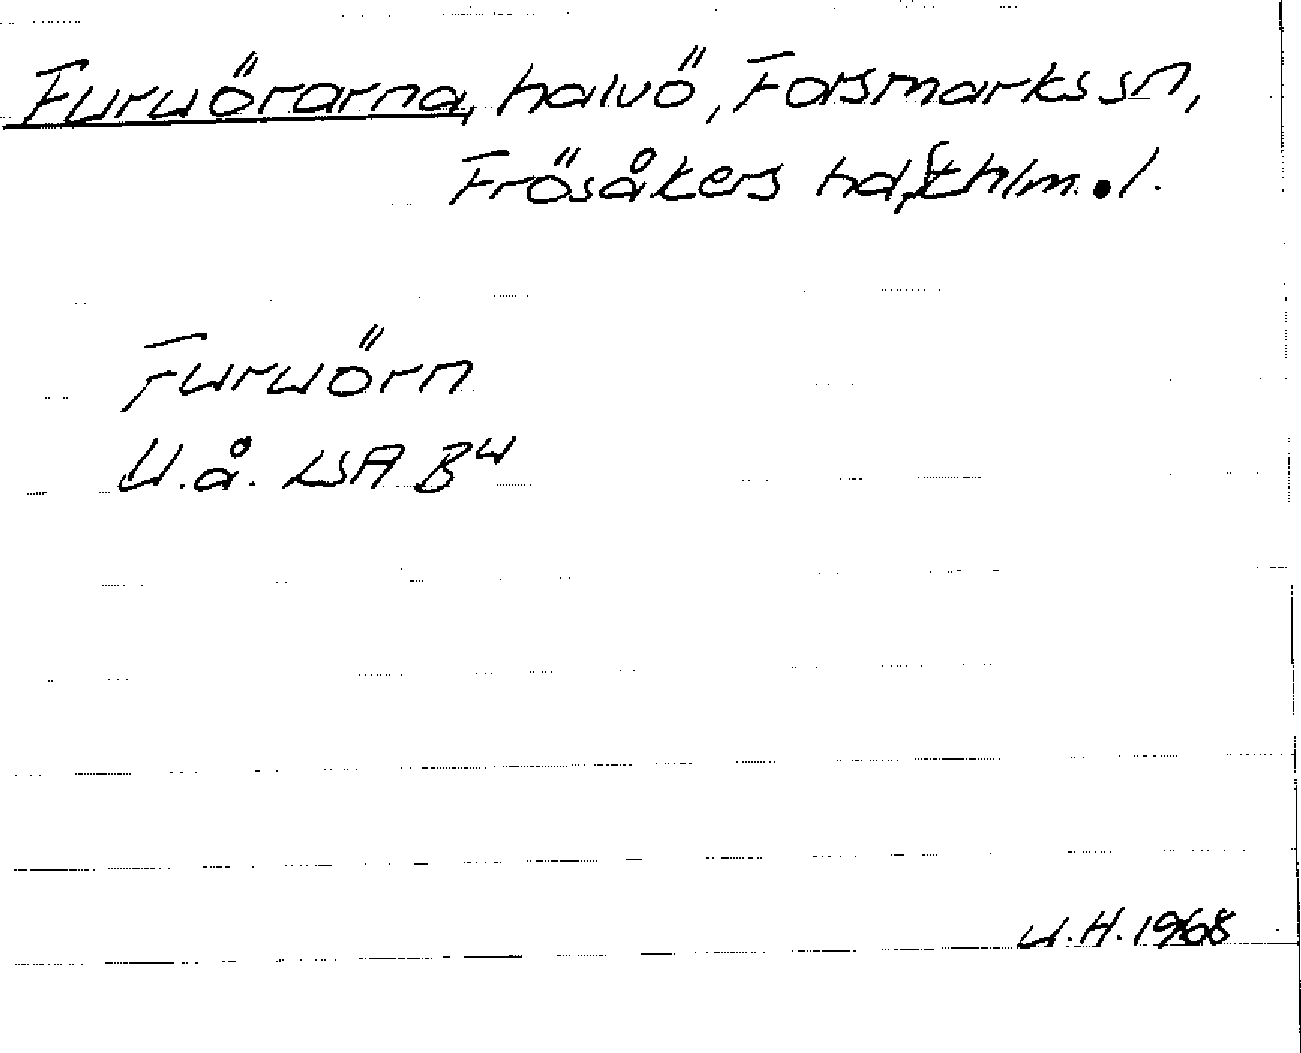 Furuörarna, halvö, Forsmarks sn,
Frösåkers hd, Sthlm. l.
Furuörn
U.å. LSA B⁴
U.H. 1968